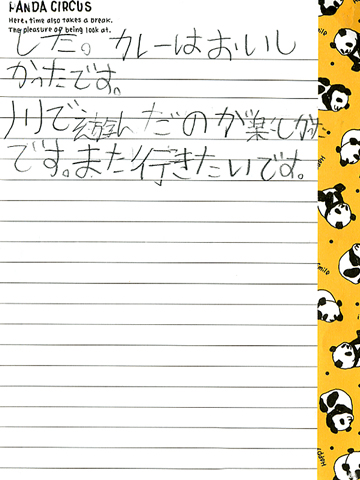 PANDA CIRCUS
Here, time also takes a break.
The pleasure of being look at.
した。カレーはおいし
かったです。
川で遊んだのが楽しかった
です。また行きたいです。
Smile
Happy
Smile
Happy